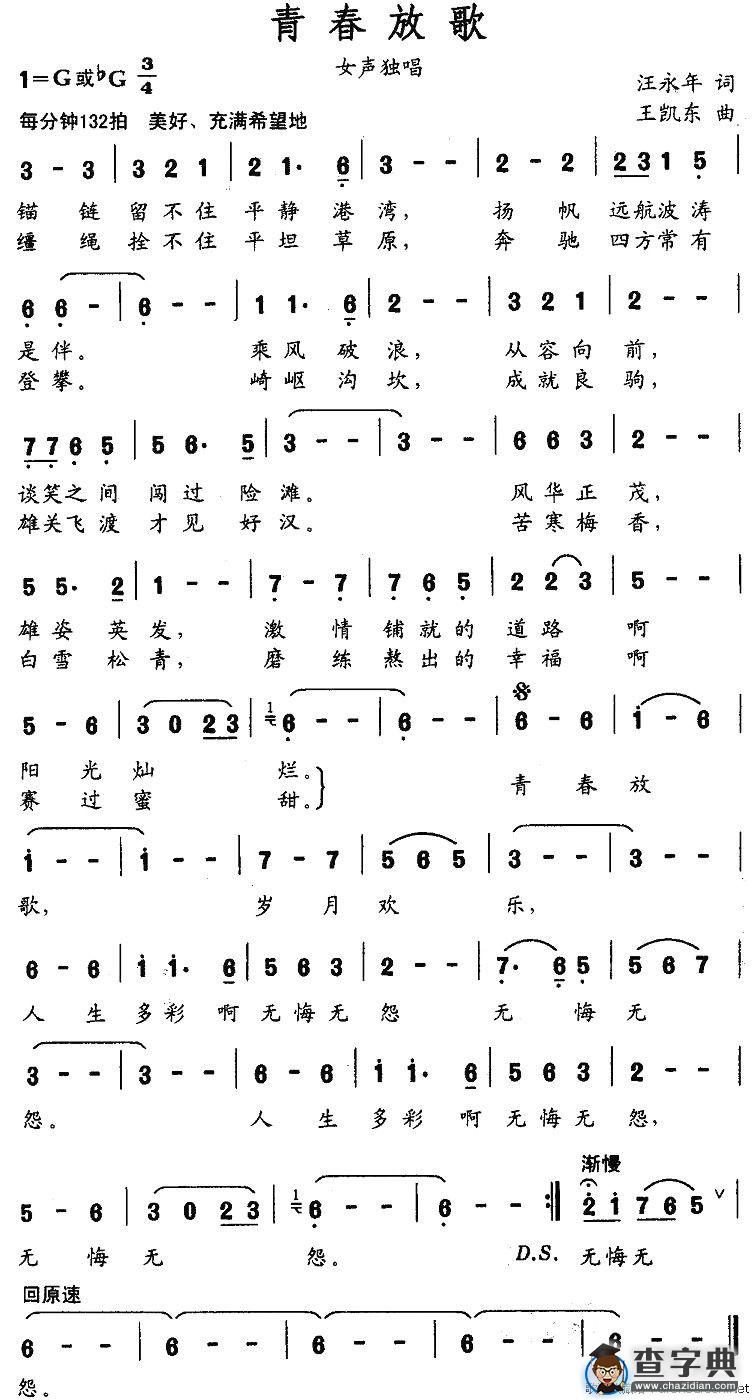 青春放歌
女声独唱
1=G或♭G 3/4
汪永年 词
每分钟132拍 美好、充满希望地
王凯东 曲
3 - 3 | 3 2 1 | 2 1· 6 | 2 - 2 | 2 3 1 5 |
锚链留不住平静港湾，扬帆远航波涛
缰绳拴不住平坦草原，奔驰四方常有
6 6 - | 6 - - | 1 1· 6 | 2 - - | 3 2 1 | 2 - - |
是伴。乘风破浪，从容向前，
登攀。崎岖沟坎，成就良驹，
7 7 6 5 | 5 6· 5 | 3 - - | 3 - - | 6 6 3 | 2 - - |
谈笑之间闯过险滩。风华正茂，
雄关飞渡才见好汉。苦寒梅香，
5 5· 2 | 1 - - | 7 - 7 | 7 6 5 | 2 2 3 | 5 - - |
雄姿英发，激情铺就的道路啊
白雪松青，磨练熬出的幸福啊
5 - 6 | 3 0 2 3 | 1 6 - - | 6 - - | 6 - 6 | i - 6 |
阳光灿烂。
赛过蜜甜。
青春放
i - - | i - - | 7 - 7 | 5 6 5 | 3 - - | 3 - - |
歌，岁月欢乐，
6 - 6 | i i· 6 | 5 6 3 | 2 - - | 7· 6 5 | 5 6 7 |
人生多彩啊无悔无怨 无悔无
3 - - | 3 - - | 6 - 6 | i i· 6 | 5 6 3 | 2 - - |
怨。人生多彩啊无悔无怨，
渐慢
5 - 6 | 3 0 2 3 | 1 6 - - | 6 - - :‖ 2 i 7 6 5 ∨ |
无悔无怨。 D.S. 无悔无
回原速
6 - - | 6 - - | 6 - - | 6 - - | 6 - - ‖
怨。
查字典
www.chazidian.com